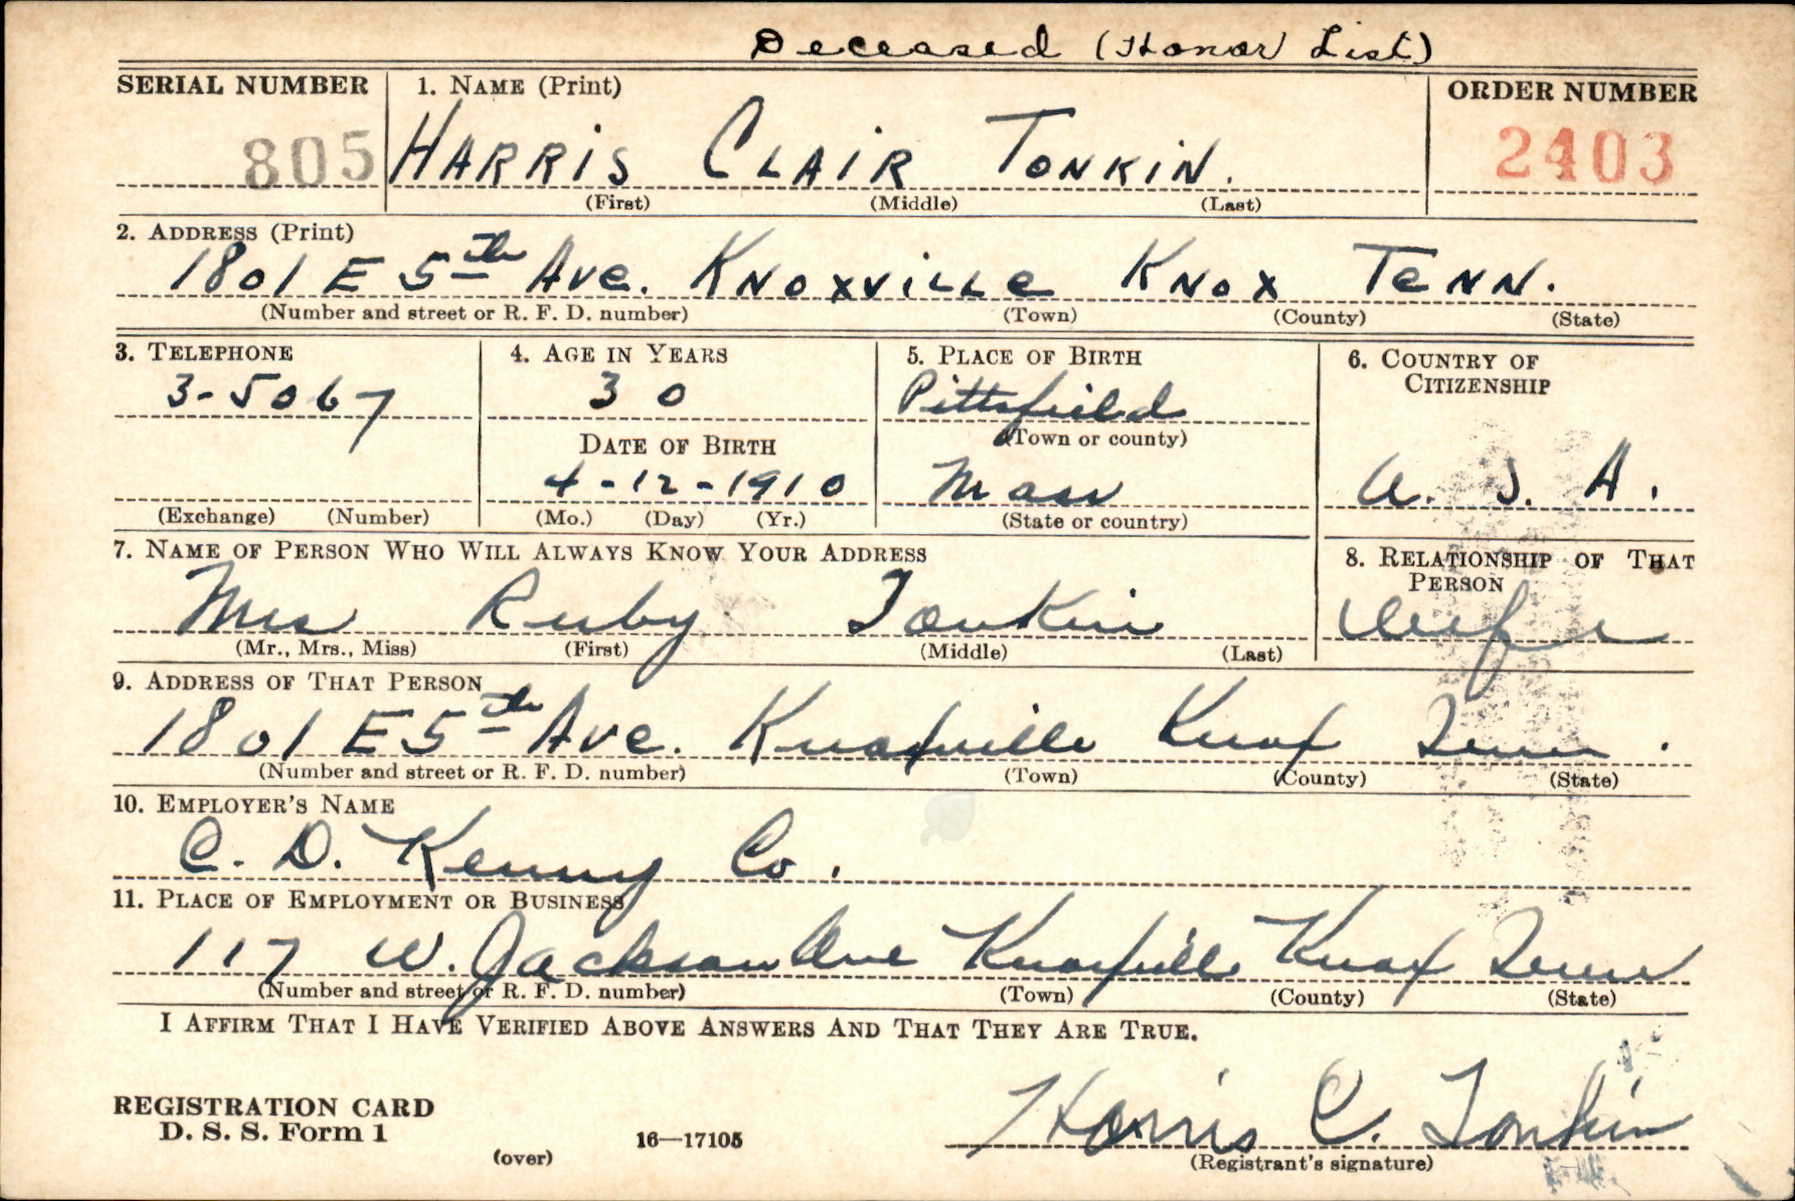 Deceased (Honor List)
SERIAL NUMBER 1. NAME (Print) ORDER NUMBER
805 HARRIS CLAIR TONKIN. 2403
(First) (Middle) (Last)
2. ADDRESS (Print)
1801 E 5th Ave. KNOXVILLE KNOX TENN.
(Number and street or R. F. D. number) (Town) (County) (State)
3. TELEPHONE 4. AGE IN YEARS 5. PLACE OF BIRTH 6. COUNTRY OF CITIZENSHIP
3-5067 30 Pittsfield
DATE OF BIRTH (Town or county)
4-12-1910 Mass U. S. A.
(Exchange) (Number) (Mo.) (Day) (Yr.) (State or country)
7. NAME OF PERSON WHO WILL ALWAYS KNOW YOUR ADDRESS 8. RELATIONSHIP OF THAT PERSON
Mrs Ruby Tonkin Wife
(Mr., Mrs., Miss) (First) (Middle) (Last)
9. ADDRESS OF THAT PERSON
1801 E 5th Ave. Knoxville Knox Tenn.
(Number and street or R. F. D. number) (Town) (County) (State)
10. EMPLOYER'S NAME
C. D. Kenny Co.
11. PLACE OF EMPLOYMENT OR BUSINESS
117 W. Jackson Ave Knoxville Knox Tenn
(Number and street or R. F. D. number) (Town) (County) (State)
I AFFIRM THAT I HAVE VERIFIED ABOVE ANSWERS AND THAT THEY ARE TRUE.
REGISTRATION CARD
D. S. S. Form 1 16—17105 Harris C. Tonkin
(over) (Registrant's signature)